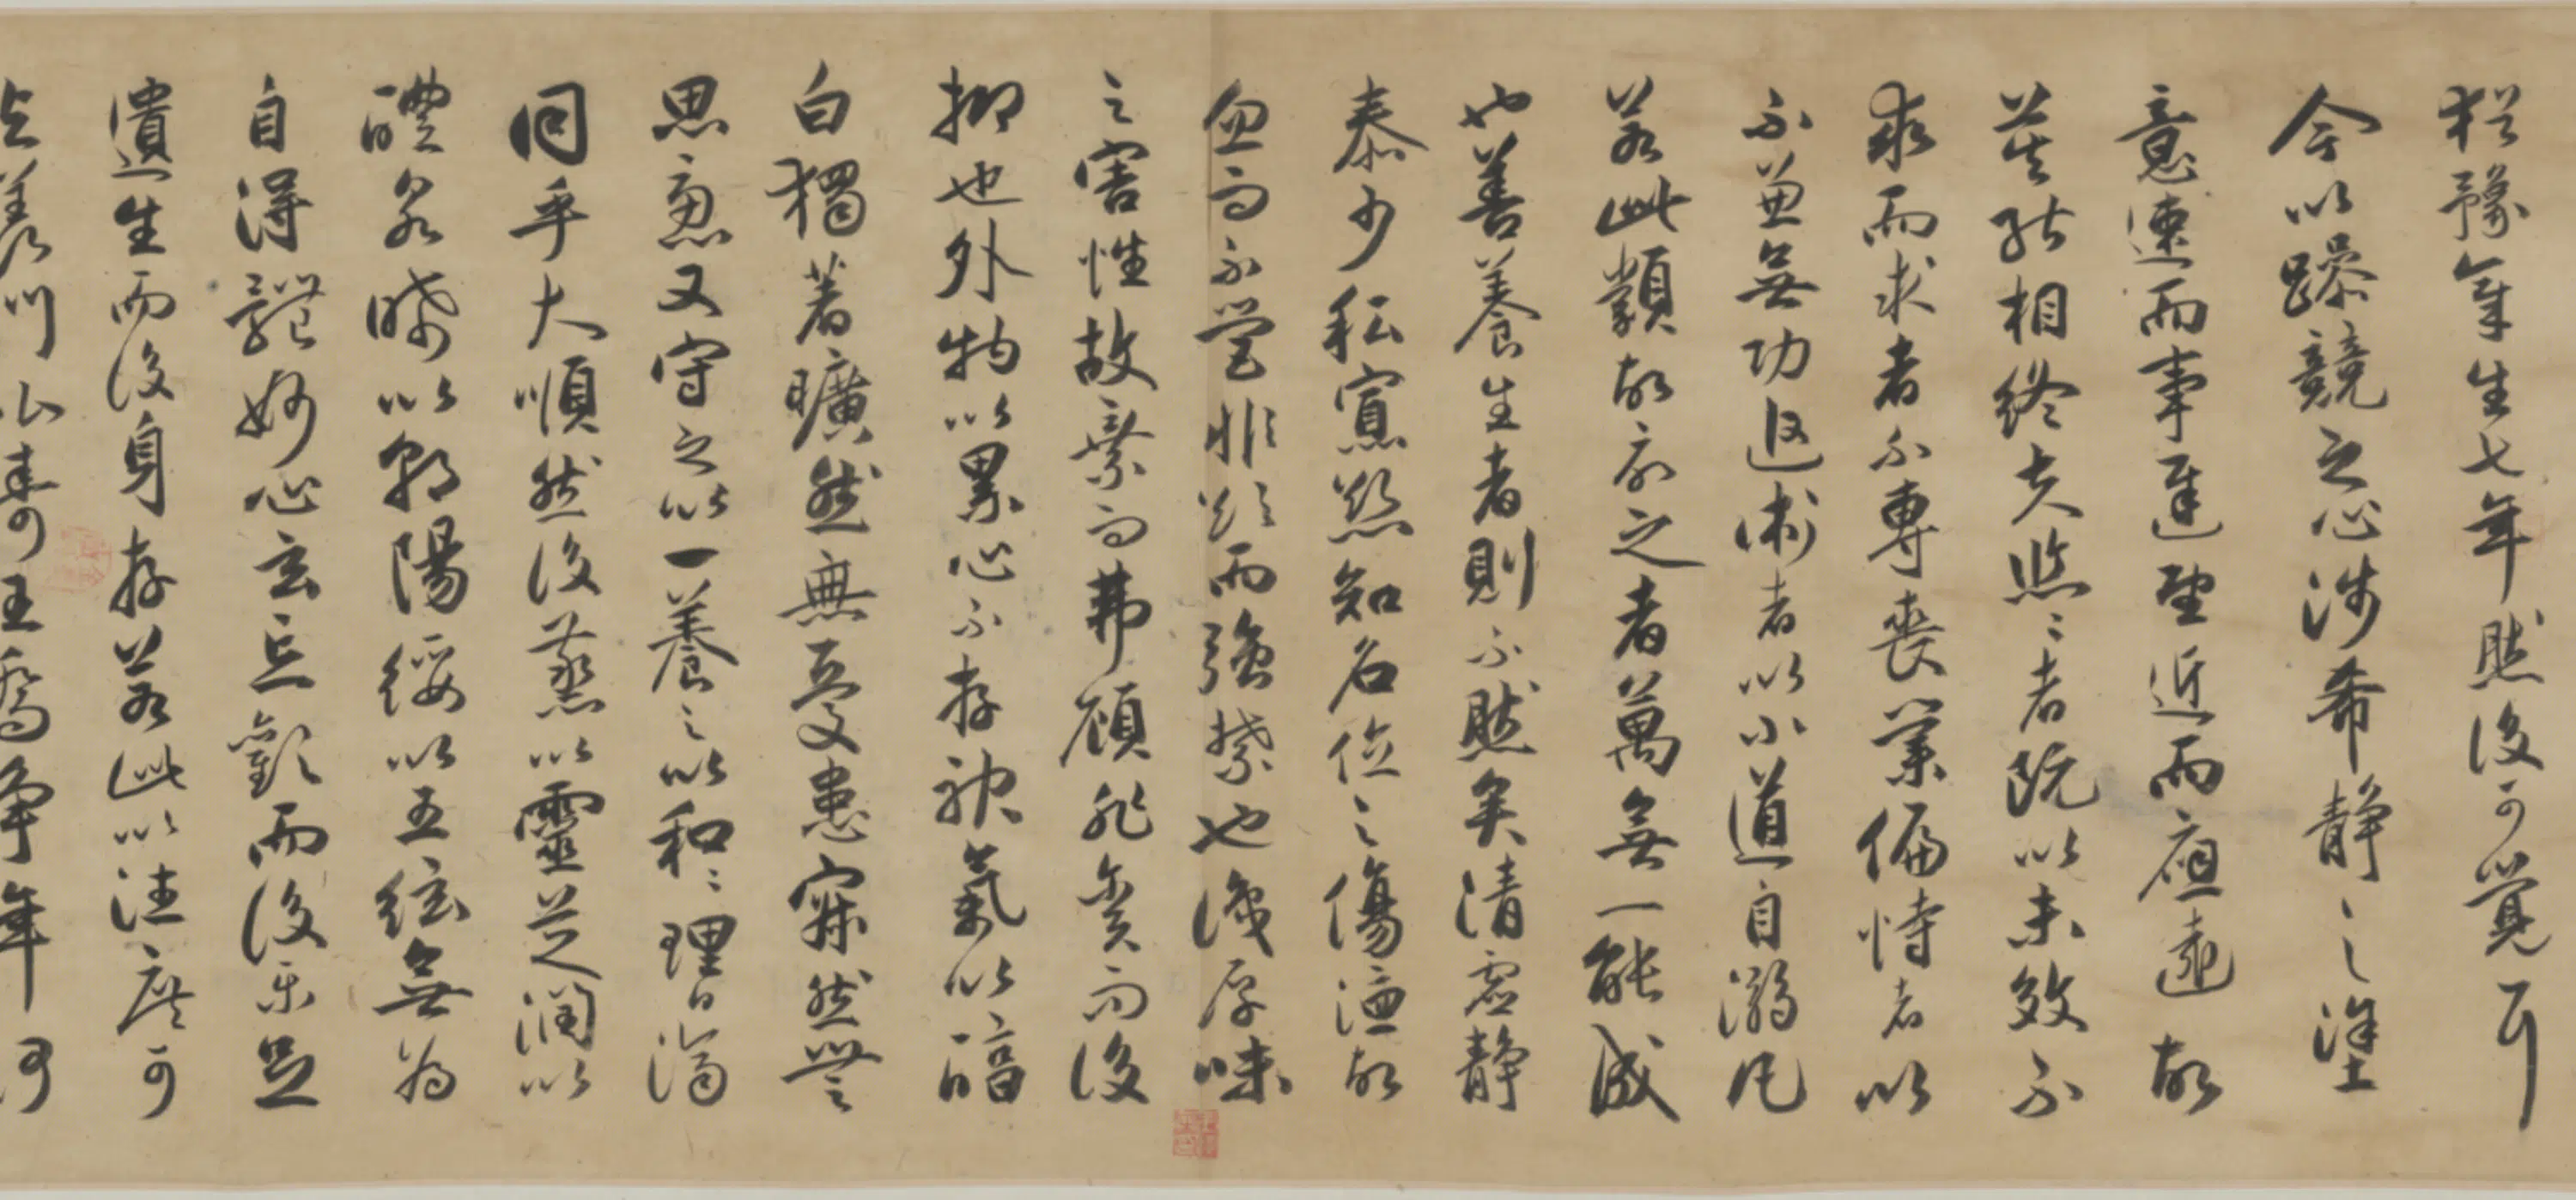 猶豫章生七年然後可覺耳
今以躁競之心涉希靜之塗
意速而事遲望近而應遠故
莫能相終夫悠〻者既以未效不
求而求者不專喪業偏恃者以
不兼無功追術者以小道自溺凡
若此類故欲之者萬無一能成
也善養生者則不然矣清虛靜
泰少私寡慾知名位之傷德故
忽而不營非欲而強禁也識厚味
之害性故棄而弗顧非貪而後
抑也外物以累心不存神氣以醇
白獨著曠然無憂患寂然無
思慮又守之以一養之以和〻理日濟
同乎大順然後蒸以靈芝潤以
醴泉晞以朝陽綏以五絃無為
自得體妙心玄忘歡而後樂足
遺生而後身存若此以往庶可
與羨門比壽王喬爭年何